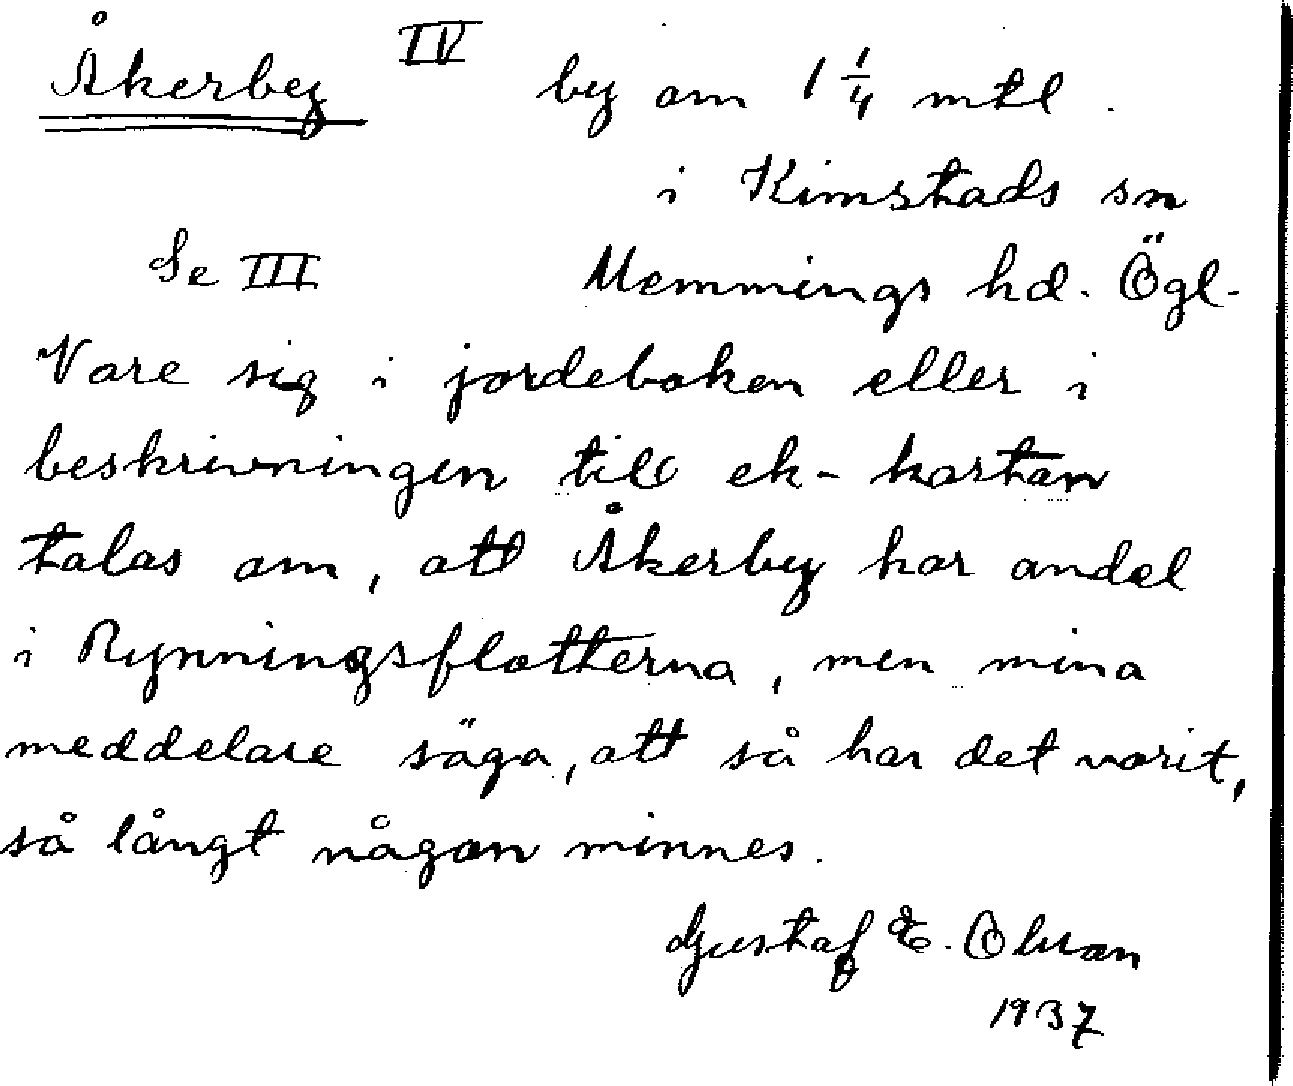 Åkerby IV by om 1 1/4 mtl.
i Kimstads sn
Se III Memmings hd. Ögl.
Vare sig i jordeboken eller i
beskrivningen till ek-kartan
talas om, att Åkerby har andel
i Rynningsflotterna, men mina
meddelare säga, att så har det varit,
så långt någon minnes.
Gustaf E. Olsson
1937